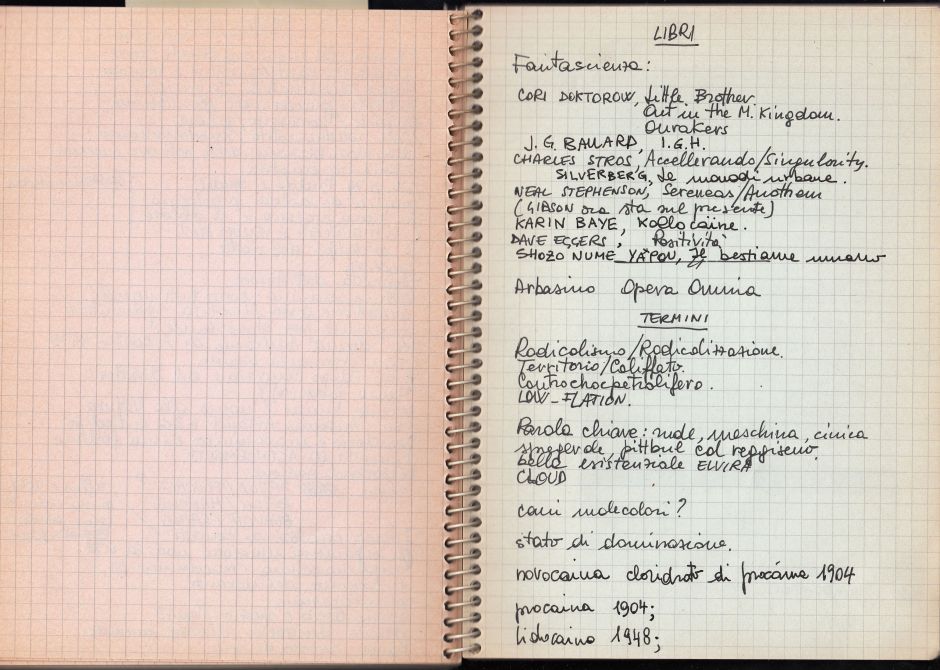 LIBRI
Fantascienza:
CORI DOKTOROW, Little Brother.
Out in the M. Kingdom.
Ourakers
J. G. BALLARD, I.G.H.
CHARLES STROS, Accellerando/Singularity.
SILVERBERG, Le monadi urbane.
NEAL STEPHENSON, /Anathem
(GIBSON ora sta nel presente)
KARIN BAYE, Kollocaine.
DAVE EGGERS, Positività
SHOZO NUME YAPOU, Il bestiame umano
Arbasino Opera Omnia
TERMINI
Radicalismo/Radicalizzazione.
Territorio/Califfato.
Controchocpetrolifero.
LOW-FLATION.
Parola chiave: rude, meschina, cinica
pittbul col reggiseno.
bella esistenziale ELVIRA
CLOUD
cani molecolari?
stato di dominazione.
novocaina cloridrato di procaina 1904
procaina 1904;
lidocaina 1948;